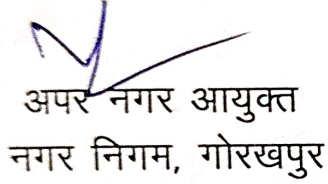 अपर नगर आयुक्त
नगर निगम, गोरखपुर